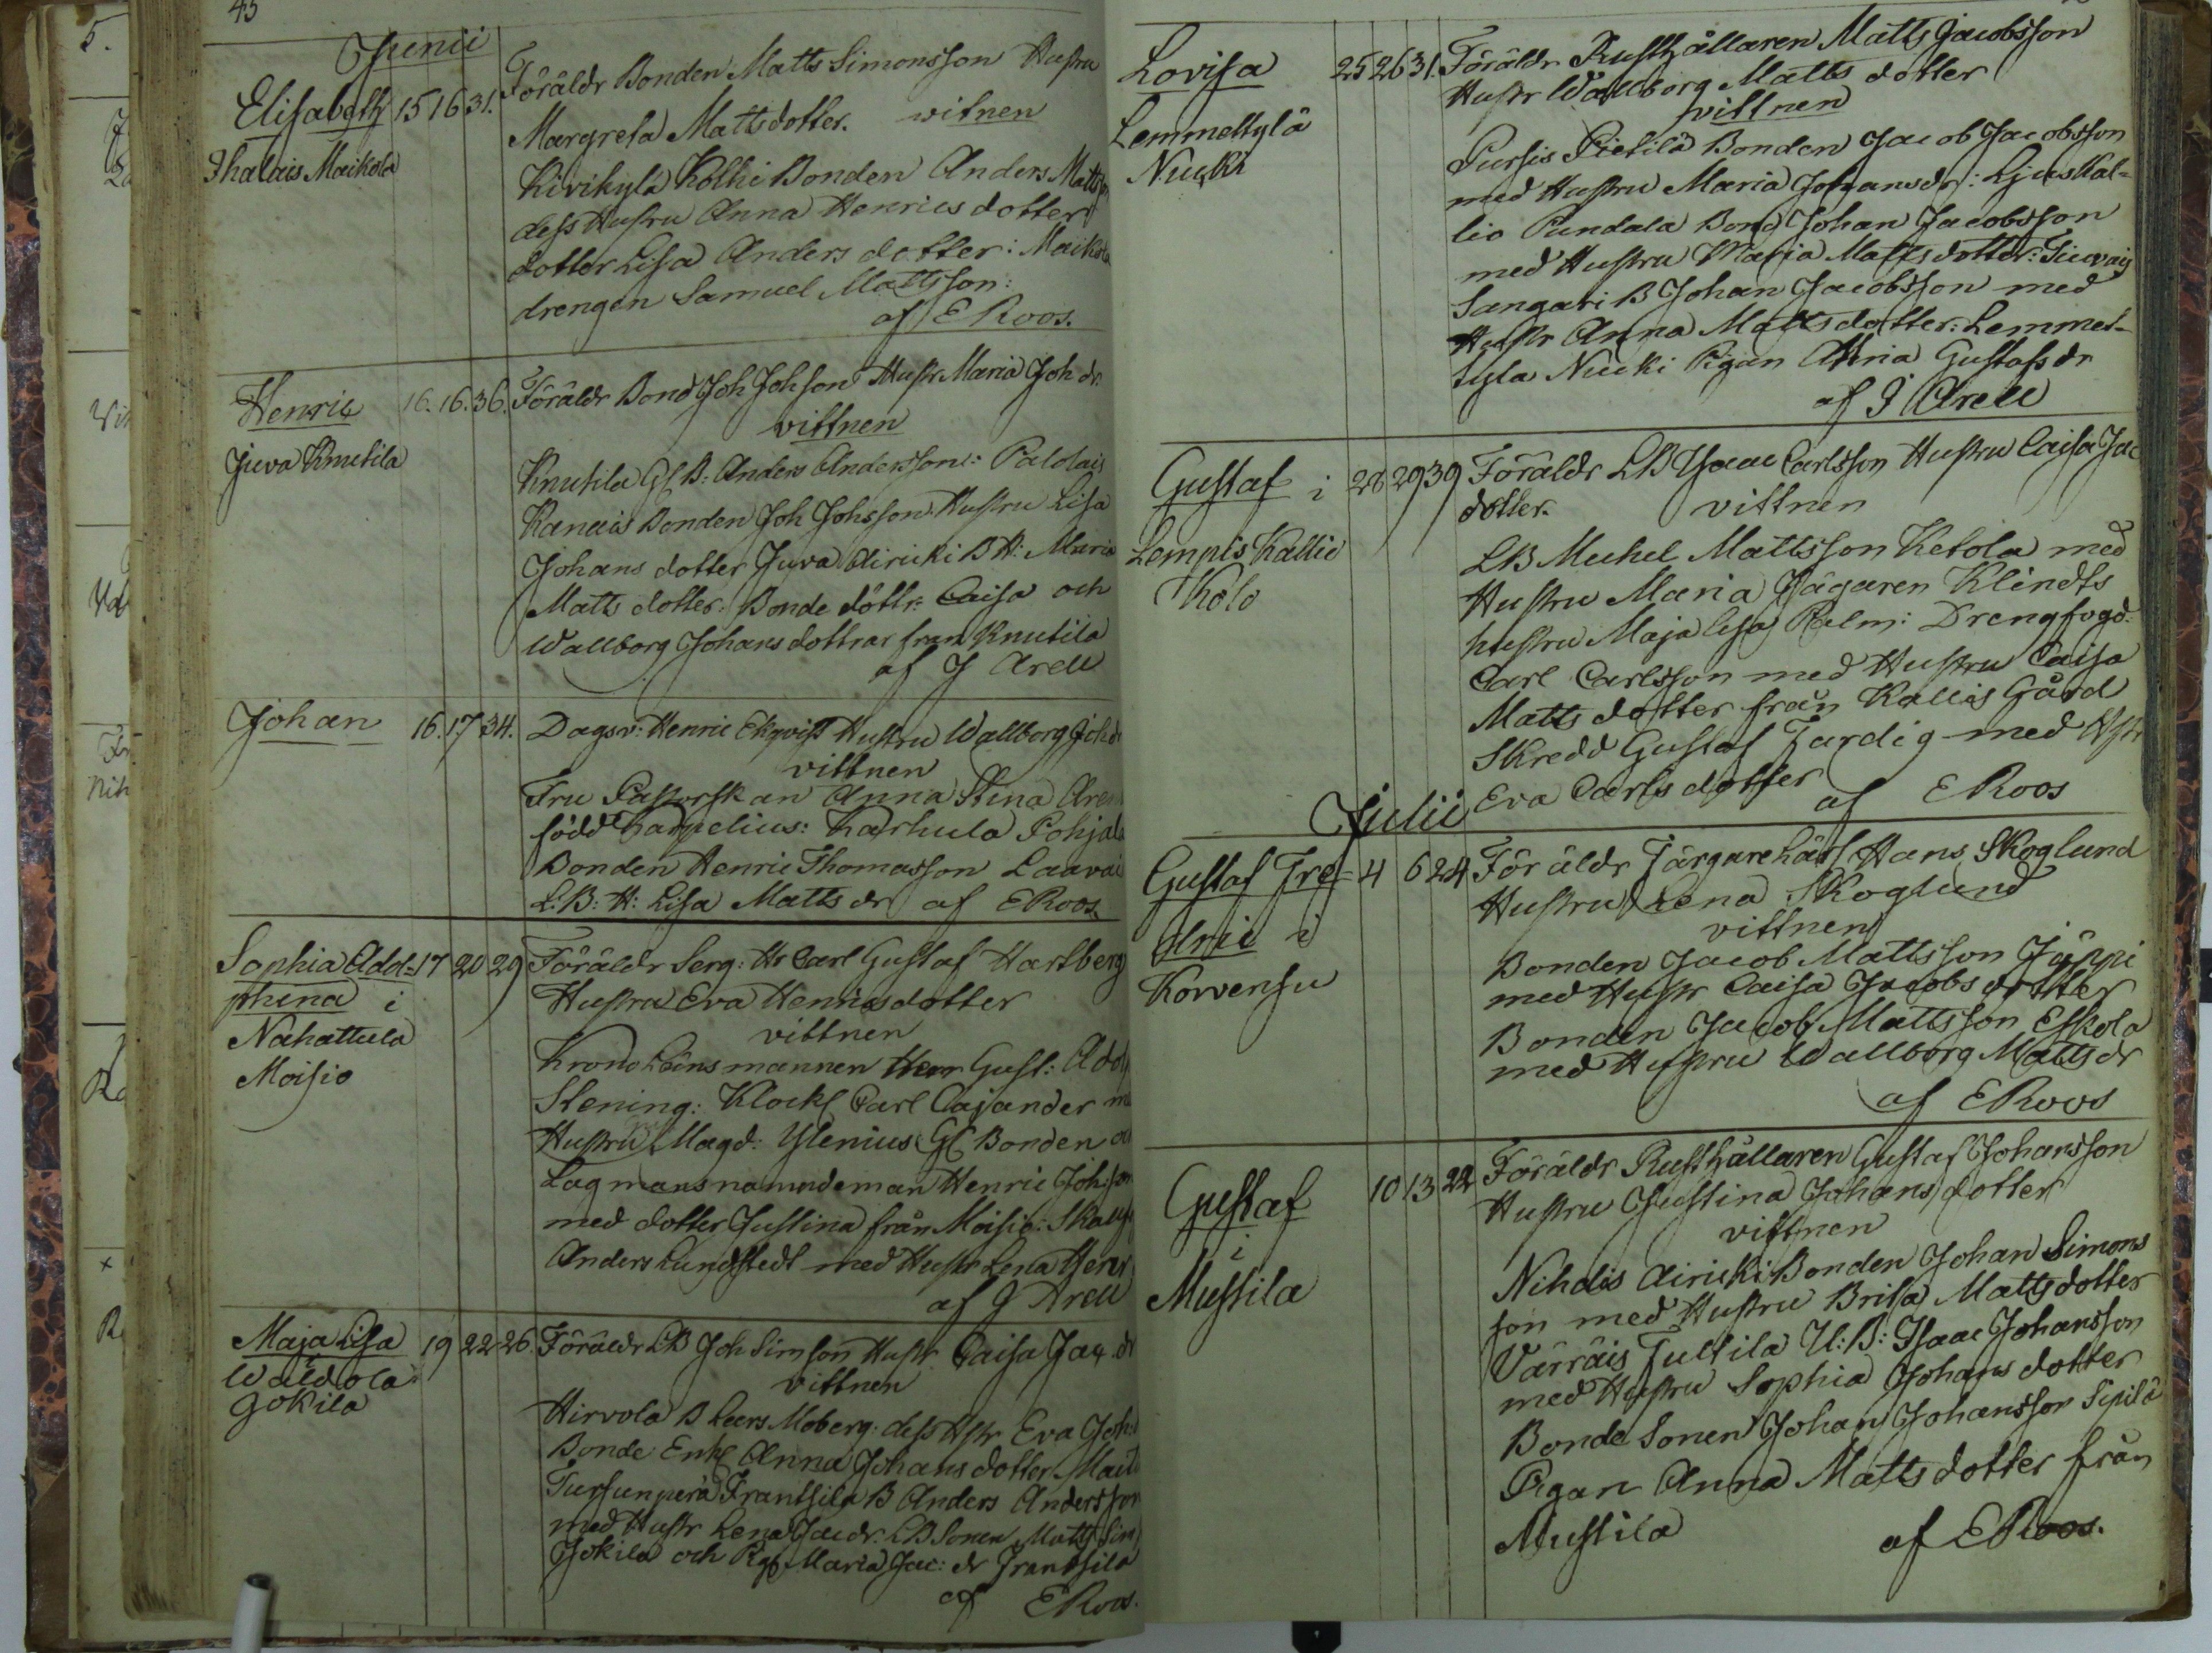 45
Junii
Elisabeth 15 16 31. Föräldr Bonden Matts Simonsson Hustru
Margreta Mattsdotter. vitnen
Ihalais Maikola
Kivikylä Kolhi Bonden Anders Matts
dess Hustru Anna Henrics dotter
dotter Lisa Anders dotter: Maikola
drengen Samuel Mattsson:
af E Roos.
Henric 16. 16. 36. Föräldr Bond Joh Johsson Hustr Maria Joh dr.
vittnen
Juva Knutila
Knutila Gl B: Anders Andersson: Palolais
Kanais Bonden Joh Johsson Hustru Lisa
Johans dotter Juva Airicki B H: Maria
Matts dotter: Bonde döttr: Caisa och
Wallborg Johans dottrar fran Knutila
af J Arell
Johan 16. 17 34. Dagsv: Henric Ekqvist Hustru Wallborg Joh d
vittnen
Fru Pastorskan Anna Stina Are
född Carpelius: Karhula Pohjala
Bonden Henric Thomasson Laavai
L: B: H: Lisa Matts dr af E Roos.
Sophia Adol= 17 20 29 Föräldr Serg: Hr Carl Gustaf Hartberg
phina i Hustru Eva Henricsdotter
vittnen
Nahattula
Moisio
Krono Länsmannen Herr Gust: Adolf
Stening: Klock Carl Cajander m
Hustru Magd: Ylenius Gl Bonden o
Lagmansnamndeman Henric Johsson
med dotter Justina från Moisio:
Anders Lundstedt med Hustr Lena
af J Arell
Maja Lisa 19 22 26. Föräldr LB Joh Simsson Hustr Caisa Jac. dr
vittnen
Jokila
Hirvola B Leers Moberg: dess Hstr Eva Joh
Bonde Enk Anna Johans dotter
Tursunperä Frantsila B Anders Andersson
med Hustr Lena Jac dr: LB Sonen Matts Sim
Jokila och Pig: Maria Jac: dr Frantsila
af E Roos.
Lovisa 25 26 31. Föräldr Rusthållaren Matts Jacobsson
Hustr Wallborg Matts dotter
vittnen
Lemmettylä
Nucki
Pursis Pietilä Bonden Jacob Jacobsson
med Hustru Maria Johansdr: Ljuskal=
lio Pundala Bond Johan Jacobsson
med Hustru Maria Matts dotter:
Sangari B Johan Jacobsson med
Hustr Anna Matts dotter: Lemmet=
tyla Nucki Pigan Maria Gustafs dr
af J Arell
Gustaf i 28 29 39 Föräldr LB Isaac Carlsson Hustru Caisa Jac
dotter. vittnen
Lempis Kallio
Kolo
LB Michel Mattsson Ketola med
Hustru Maria Jägaren Klindts
hustru Maja Lisa Palm: Drengfogd:
Carl Carlsson med Hustru Caisa
Matts dotter från Kallis Gård
Skredd Gustaf Fardig med Hstr
Eva Carls dotter af E Roos
Julii
Gustaf Fre= 4 6 24 Föräldr Färgare Hans Skoglund
dric i Hustru Lena Skoglund
vittnen
Korvensu
Bonden Jacob Mattsson Jäppi
med Hustr Caisa Jacobs dotter
Bonden Jacob Mattsson Eskola
med Hustru Wallborg Matts dr
af E Roos
Gustaf 10 13 22 Föräldr Rusthållaren Gustaf Johansson
Hustru Justina Johans dotter
vittnen
i
Mustila
Nihdis Airicki Bonden Johan Simons
son med Hustru Brita Matts dotter
Värräis Tultila U: B: Isaac Johansson
med Hustru Sophia Johans dotter
Bonde Sonen Johan Johansson Sipilä
Pigan Anna Matts dotter från
Mustila af E Roos.